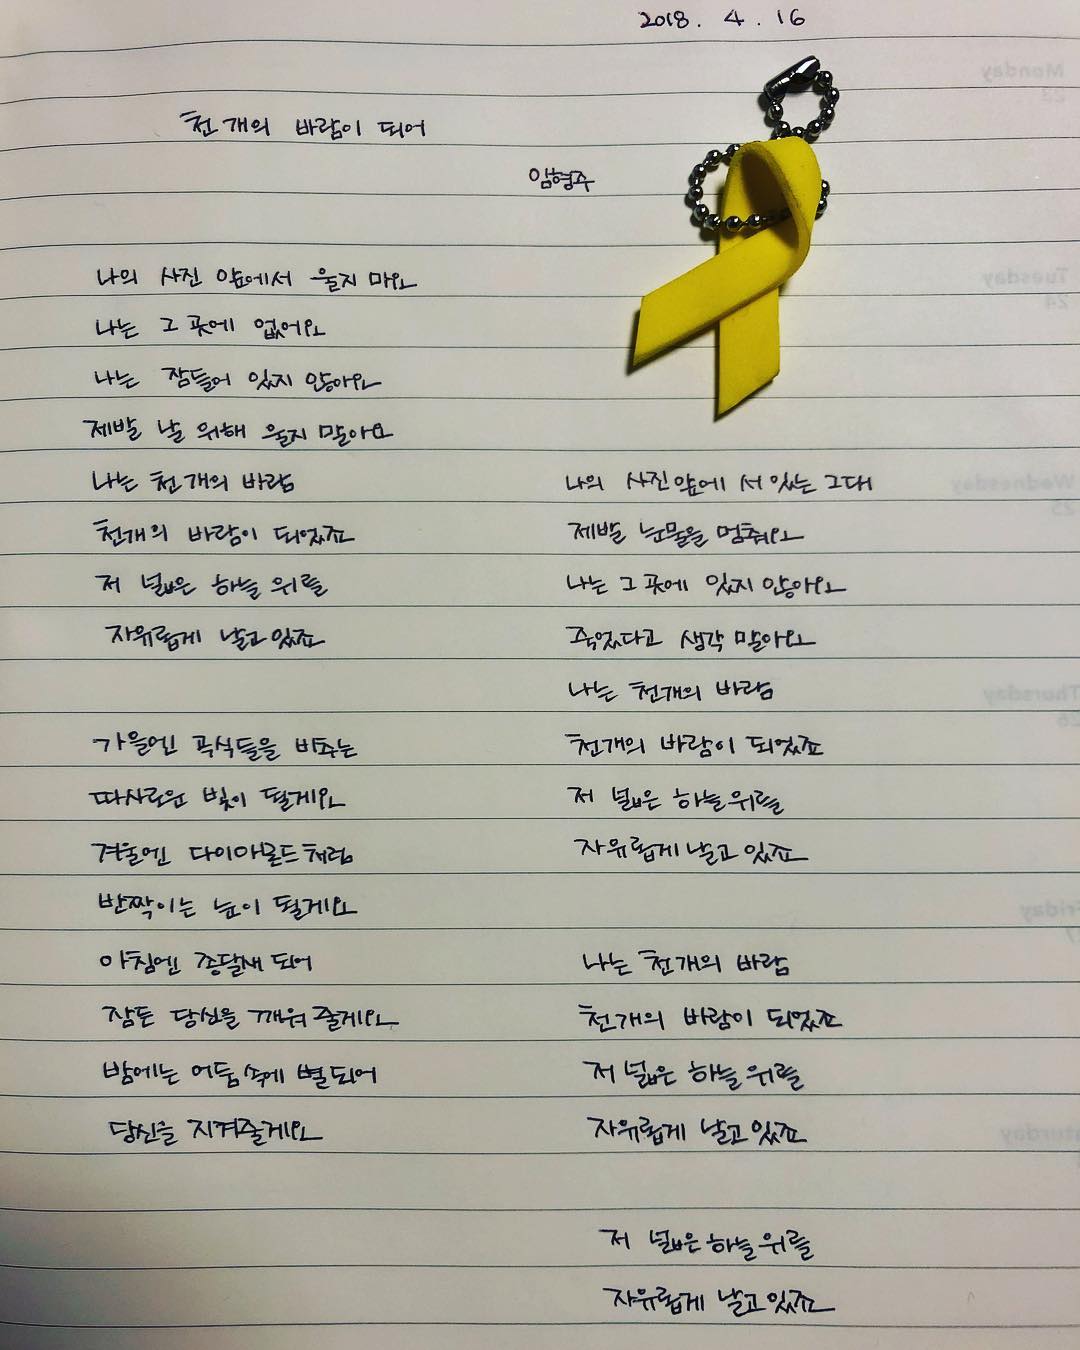 2018. 4. 16
천개의 바람이 되어
임형주
나의 사진 앞에서 울지 마요
나는 그 곳에 없어요
나는 잠들어 있지 않아요
제발 날 위해 울지 말아요
나는 천개의 바람
천개의 바람이 되었죠
저 넓은 하늘 위를
자유롭게 날고 있죠
가을엔 곡식들을 비추는
따사로운 빛이 될게요
겨울엔 다이아몬드처럼
반짝이는 눈이 될게요
아침엔 종달새 되어
잠든 당신을 깨워 줄게요
밤에는 어둠 속에 별 되어
당신을 지켜줄게요
나의 사진 앞에 서 있는 그대
제발 눈물을 멈춰요
나는 그 곳에 있지 않아요
죽었다고 생각 말아요
나는 천개의 바람
천개의 바람이 되었죠
저 넓은 하늘 위를
자유롭게 날고 있죠
나는 천개의 바람
천개의 바람이 되었죠
저 넓은 하늘 위를
자유롭게 날고 있죠
저 넓은 하늘 위를
자유롭게 날고 있죠
Monday
23
Tuesday
24
Wednesday
25
Thursday
26